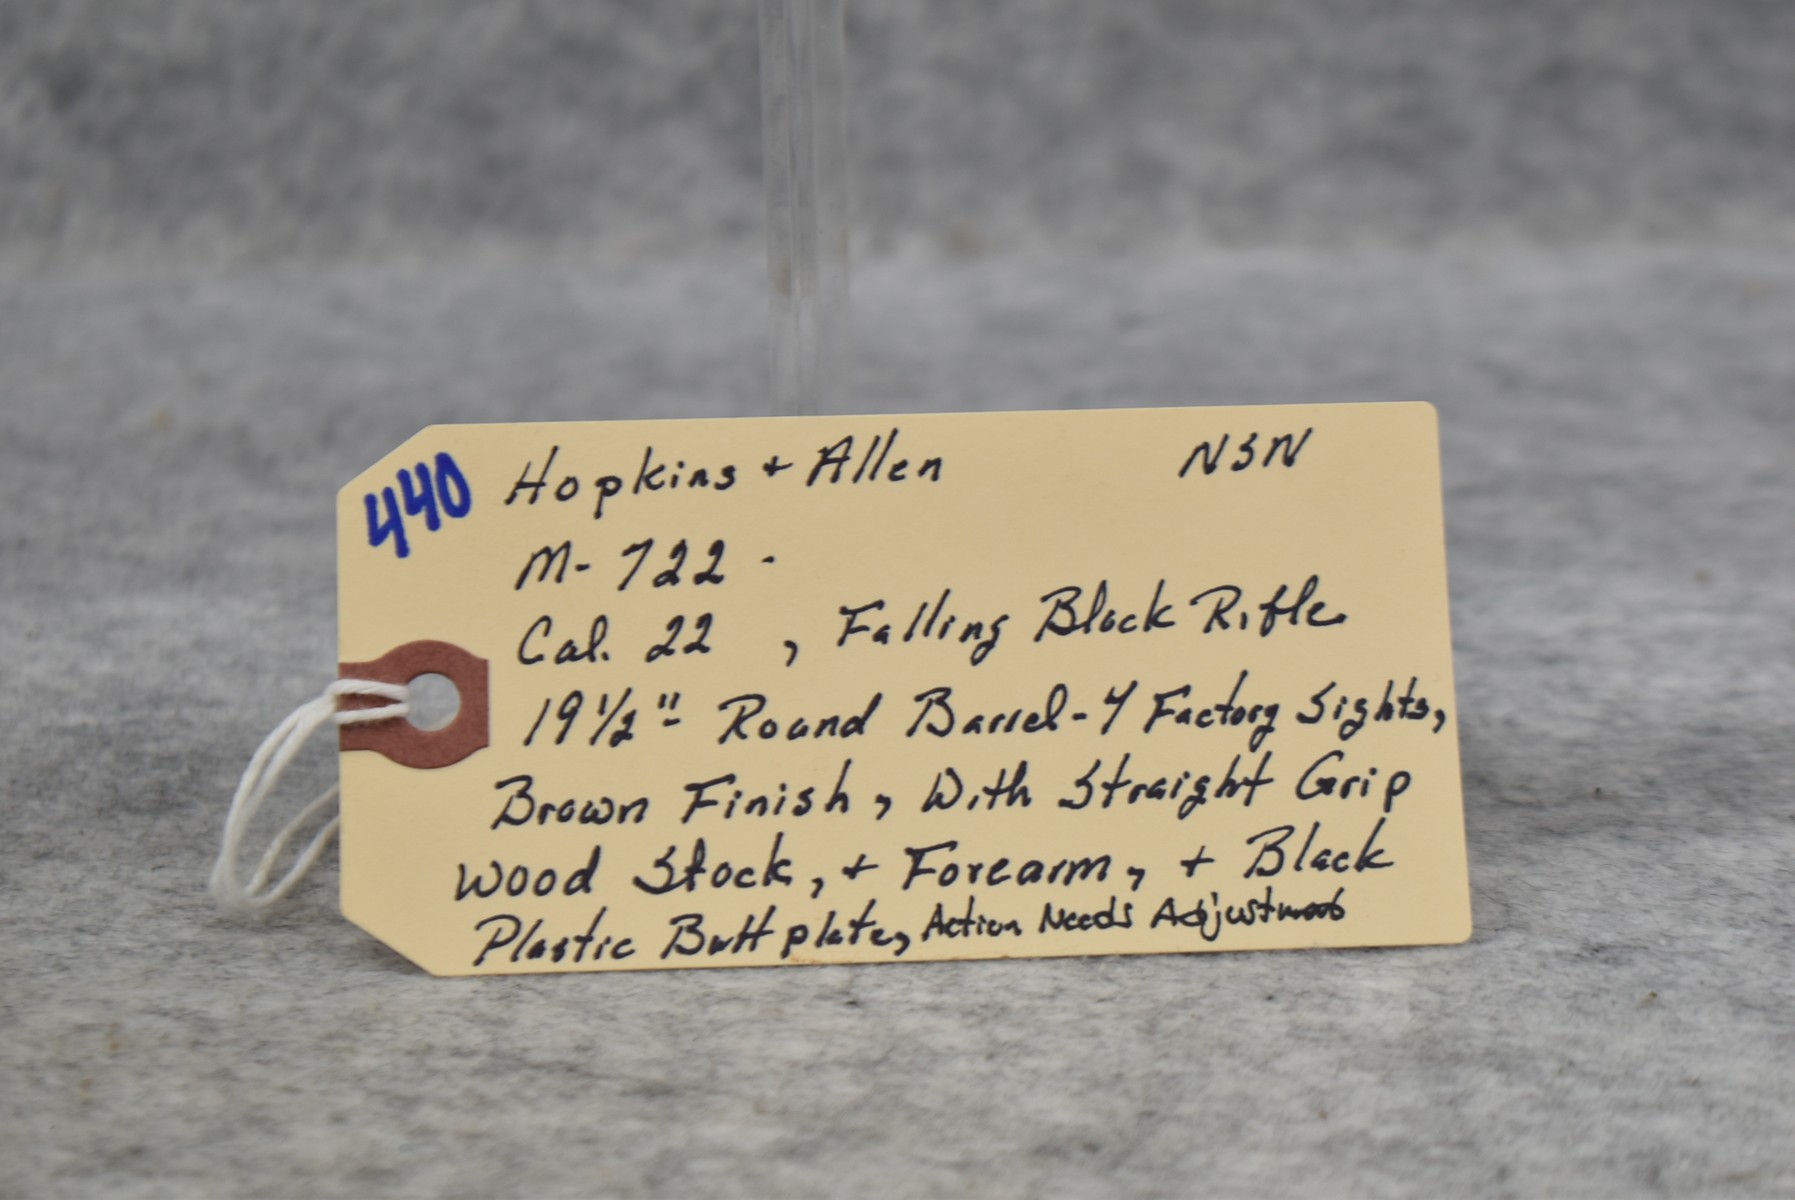 440 Hopkins + Allen NSN
M-722-
Cal. 22 , Falling Block Rifle
19 1/2"- Round Barrel-Y Factory Sights,
Brown Finish, With Straight Grip
Wood Stock, + Forearm, + Black
Plastic Butt plate, Action Needs Adjustment